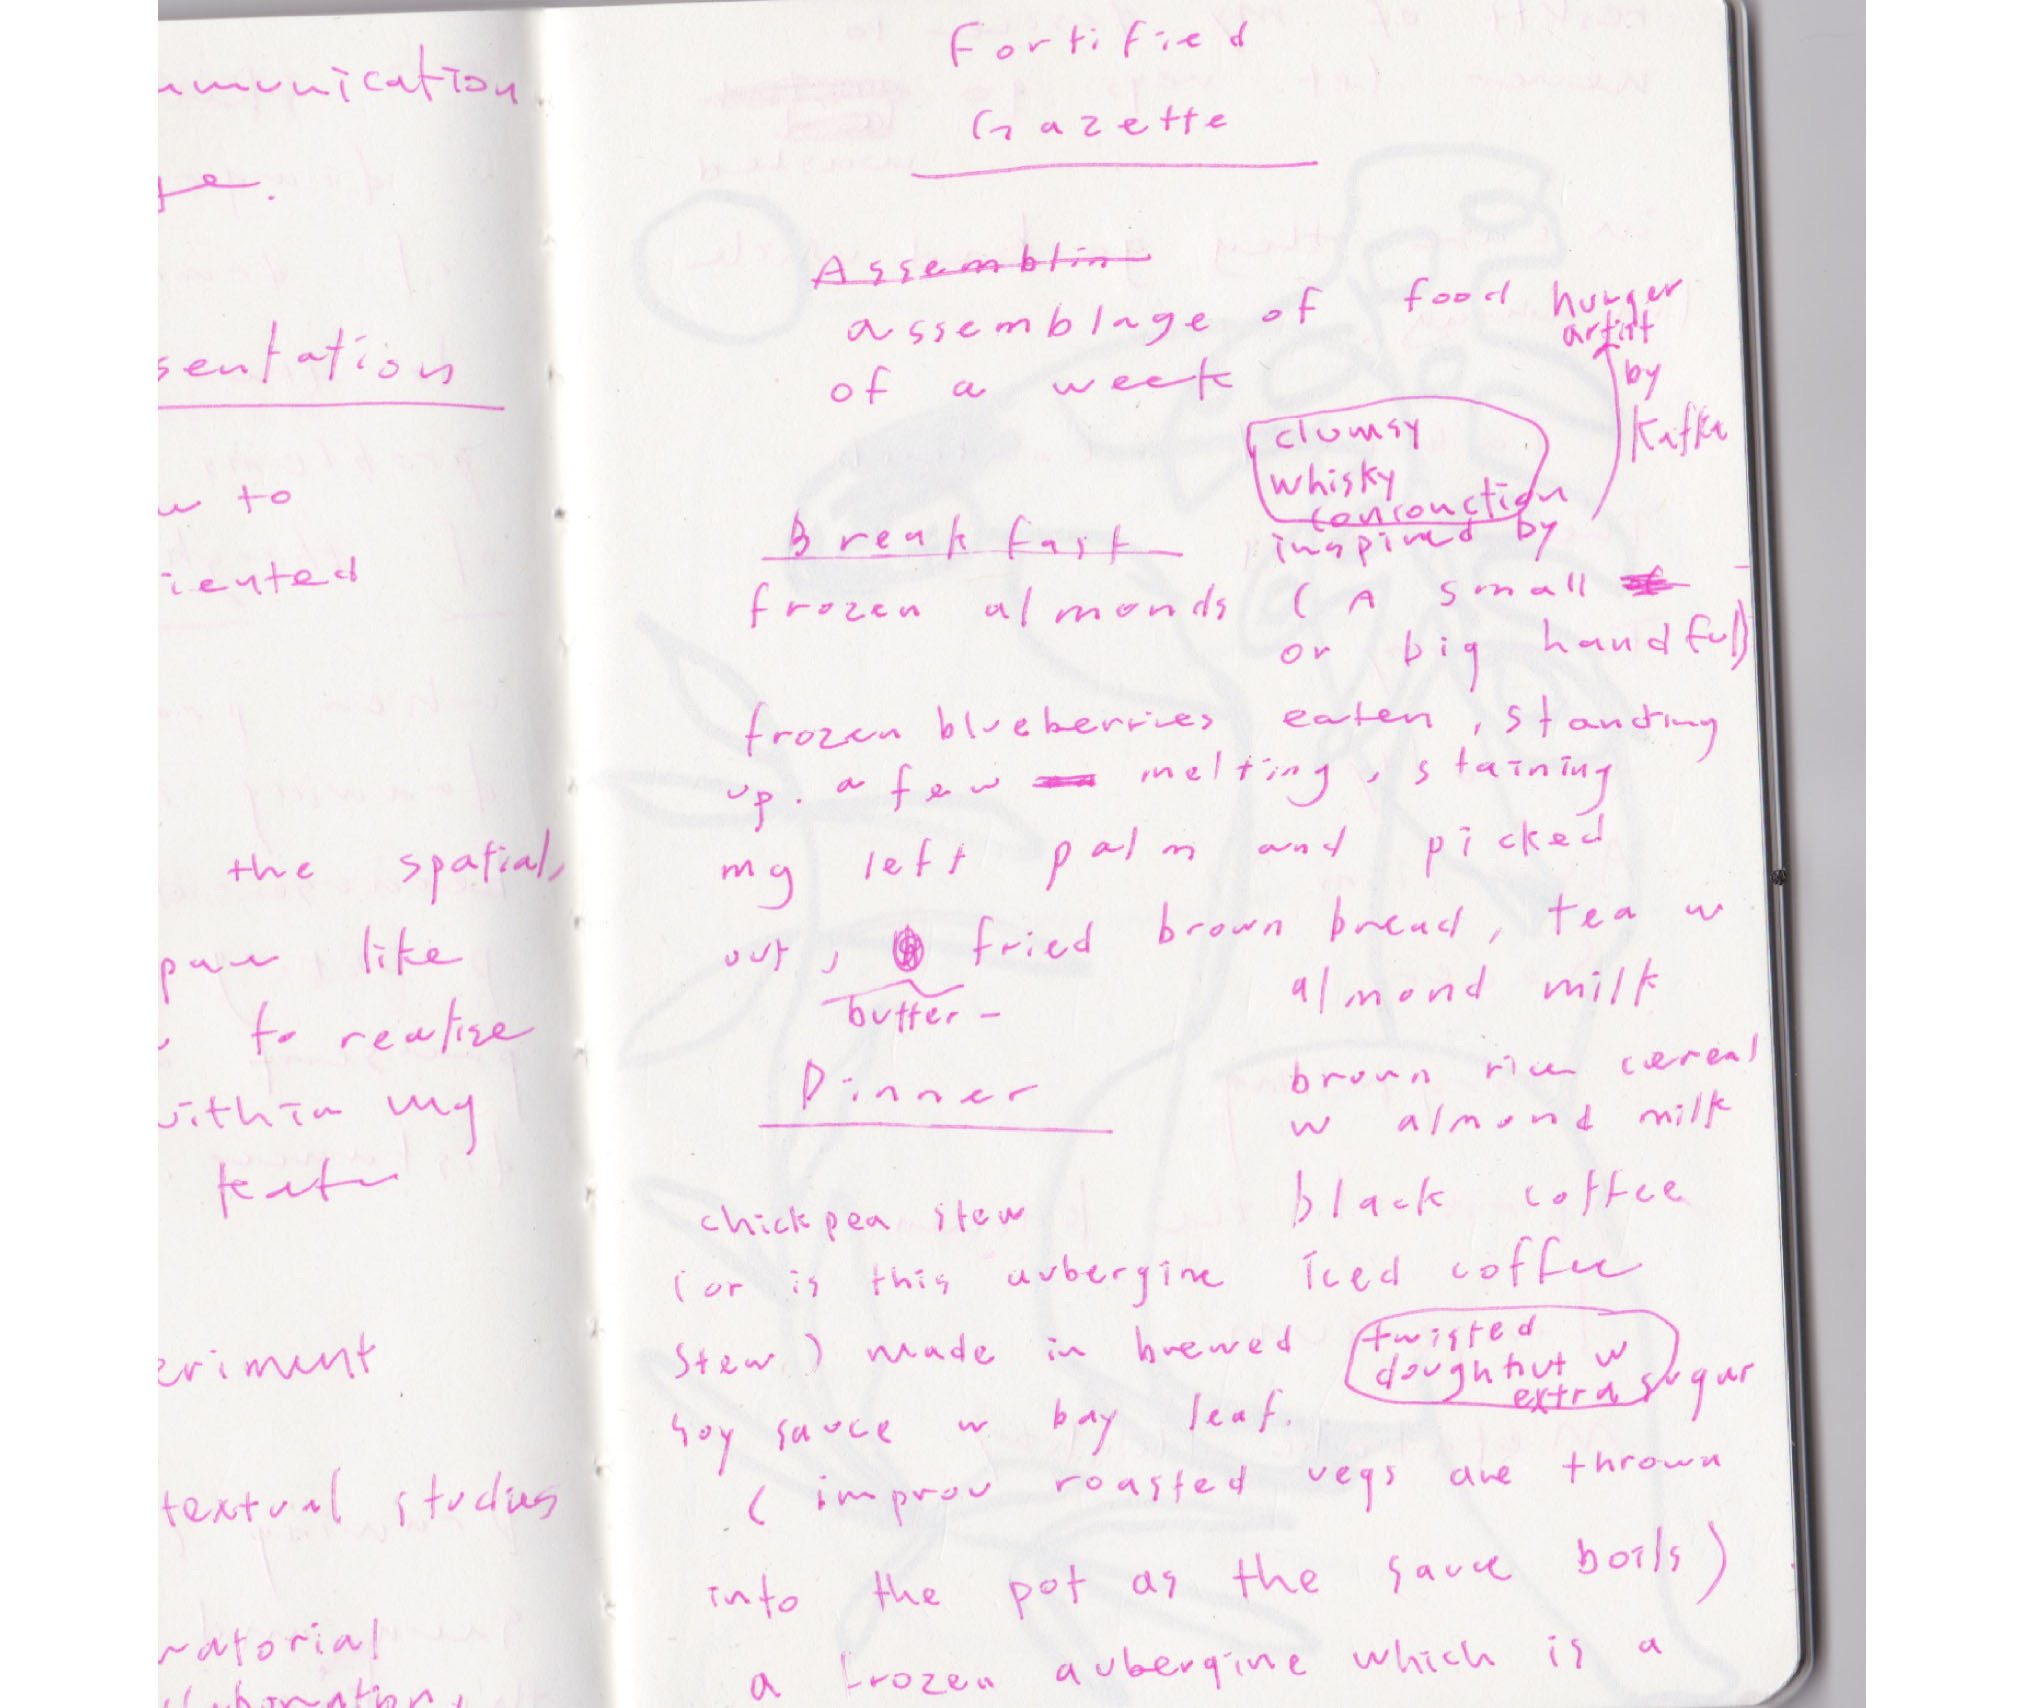 mmunication
te.
sentation
w to
iented
the spatial,
like
to realise
within my
eriment
textual studies
ratorial
Fortified
Gazette
Assemblin
assemblage of food
of a week
hunger
artist
by
Kafka
clumsy
whisky
conconction
inspired by
Breakfast
frozen almonds ( A small
or big handful)
frozen blueberries eaten, standing
up. a few melting, staining
my left palm and picked
out, fried brown bread, tea w
butter -
almond milk
brown rice cereal
w almond milk
black coffee
iced coffee
twisted
doughnut w
extra sugar
Dinner
chickpea stew
(or is this aubergine
stew) made in brewed
soy sauce w bay leaf.
( improv roasted vegs are thrown
into the pot as the sauce boils)
a frozen aubergine which is a